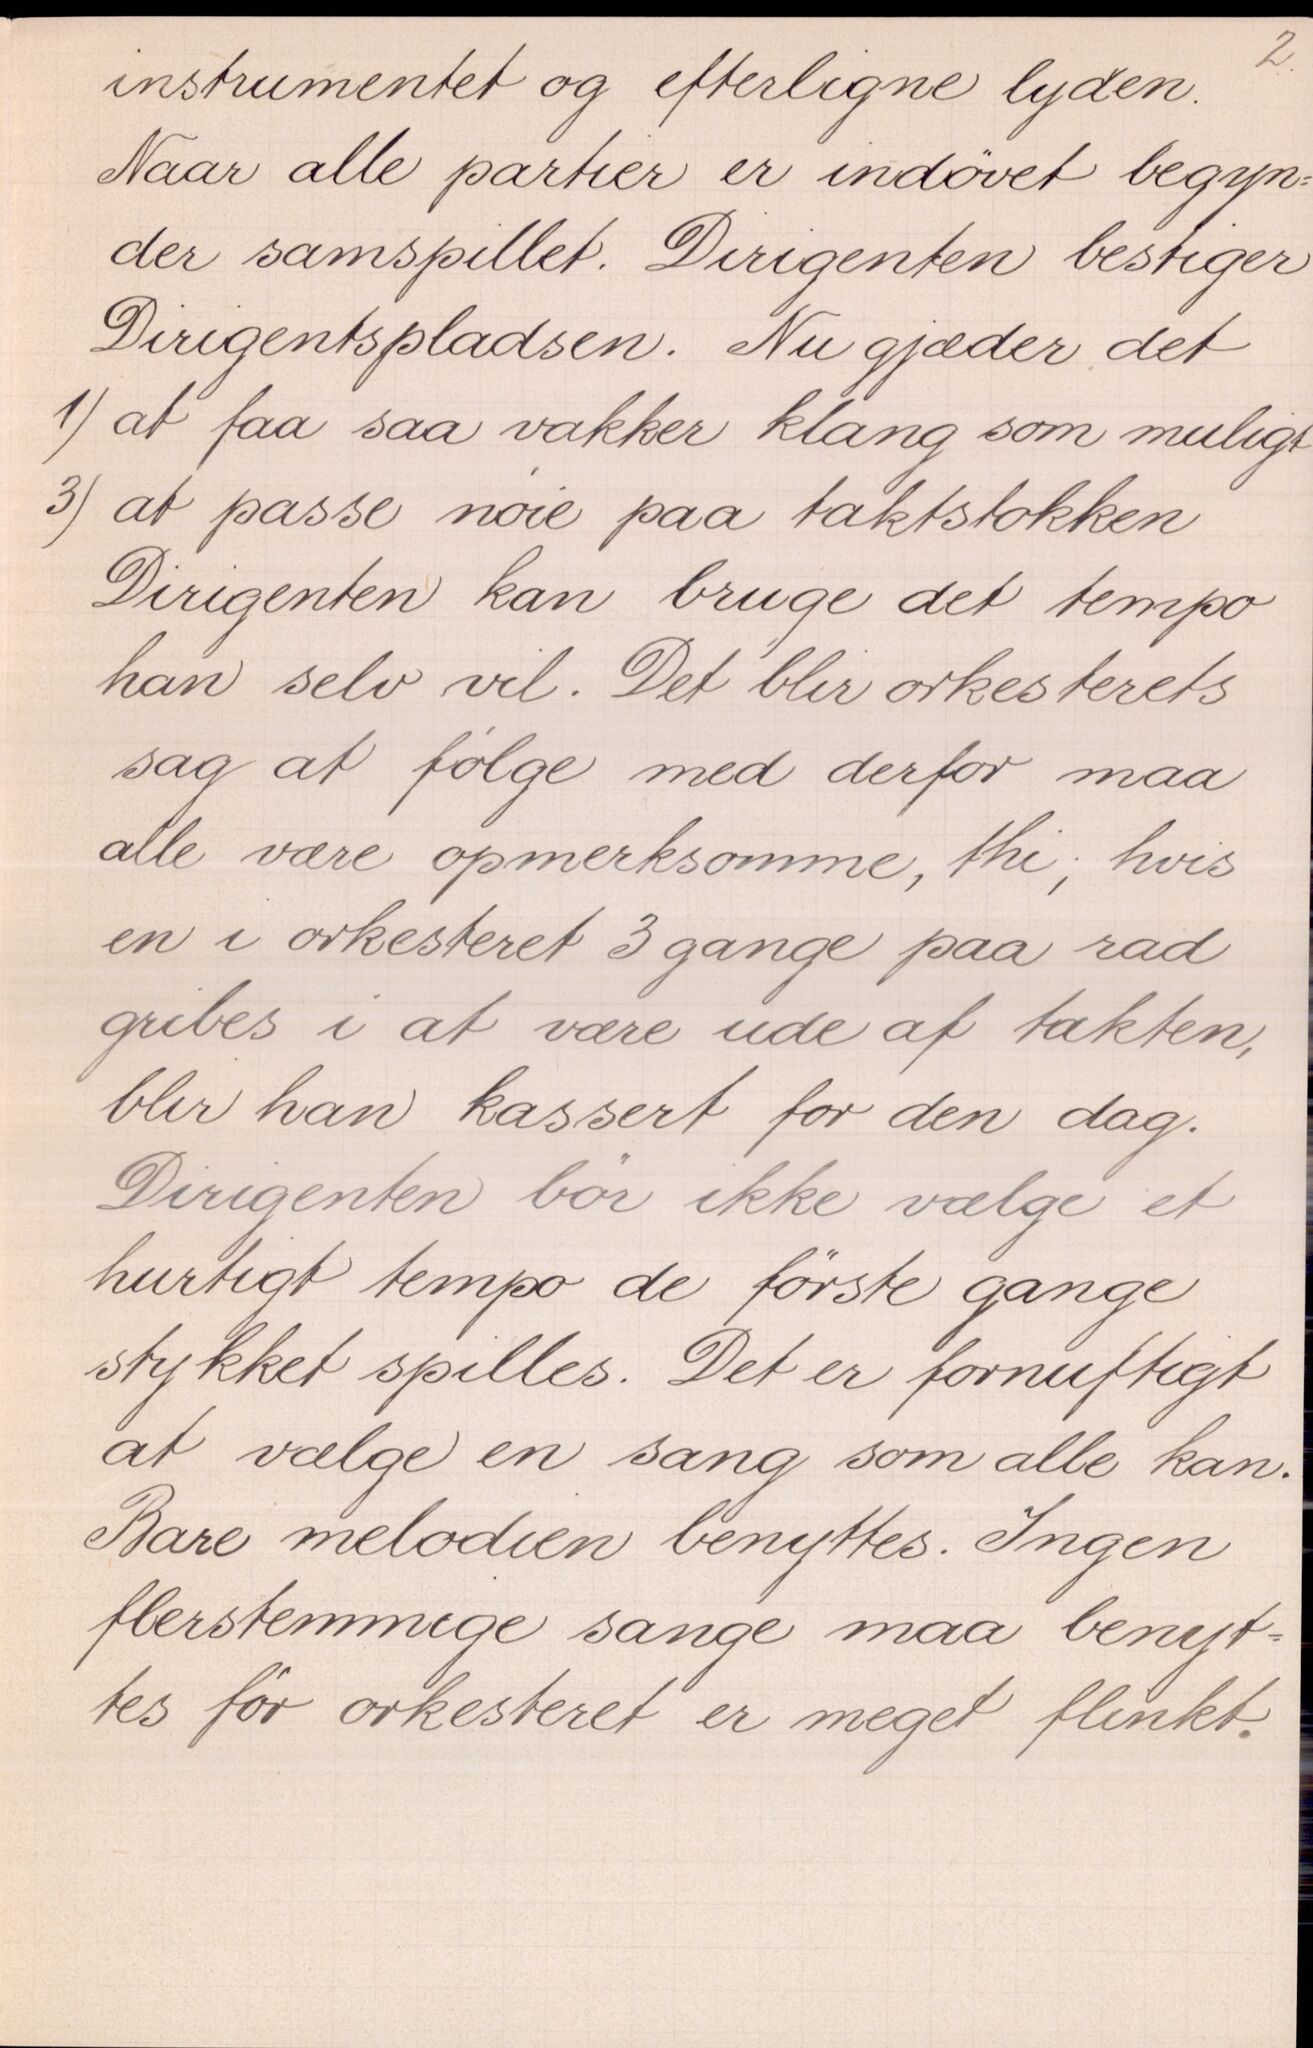 2.
instrumentet og efterligne lyden.
Naar alle partier er indövet begyn=
der samspillet. Dirigenten bestiger
Dirigentspladsen. Nu gjæder det
1) at faa saa vakker klang som muligt
3) at passe nóie paa taktstokken
Dirigenten kan bruge det tempo
han selv vil. Det blir orkesterets
sag at fölge med derfor maa
alle være opmerksomme, thi, hvis
en i orkesteret 3 gange paa rad
gribes i at være ude af takten,
blir han kassert for den dag.
Dirigenten bör ikke vælge et
hurtigt tempo de förste gange
stykket spilles. Det er fornuftigt
at vælge en sang som alle kan.
Bare melodien benyttes. Ingen
flerstemmige sange maa benyt=
tes för orkesteret er meget flinkt.